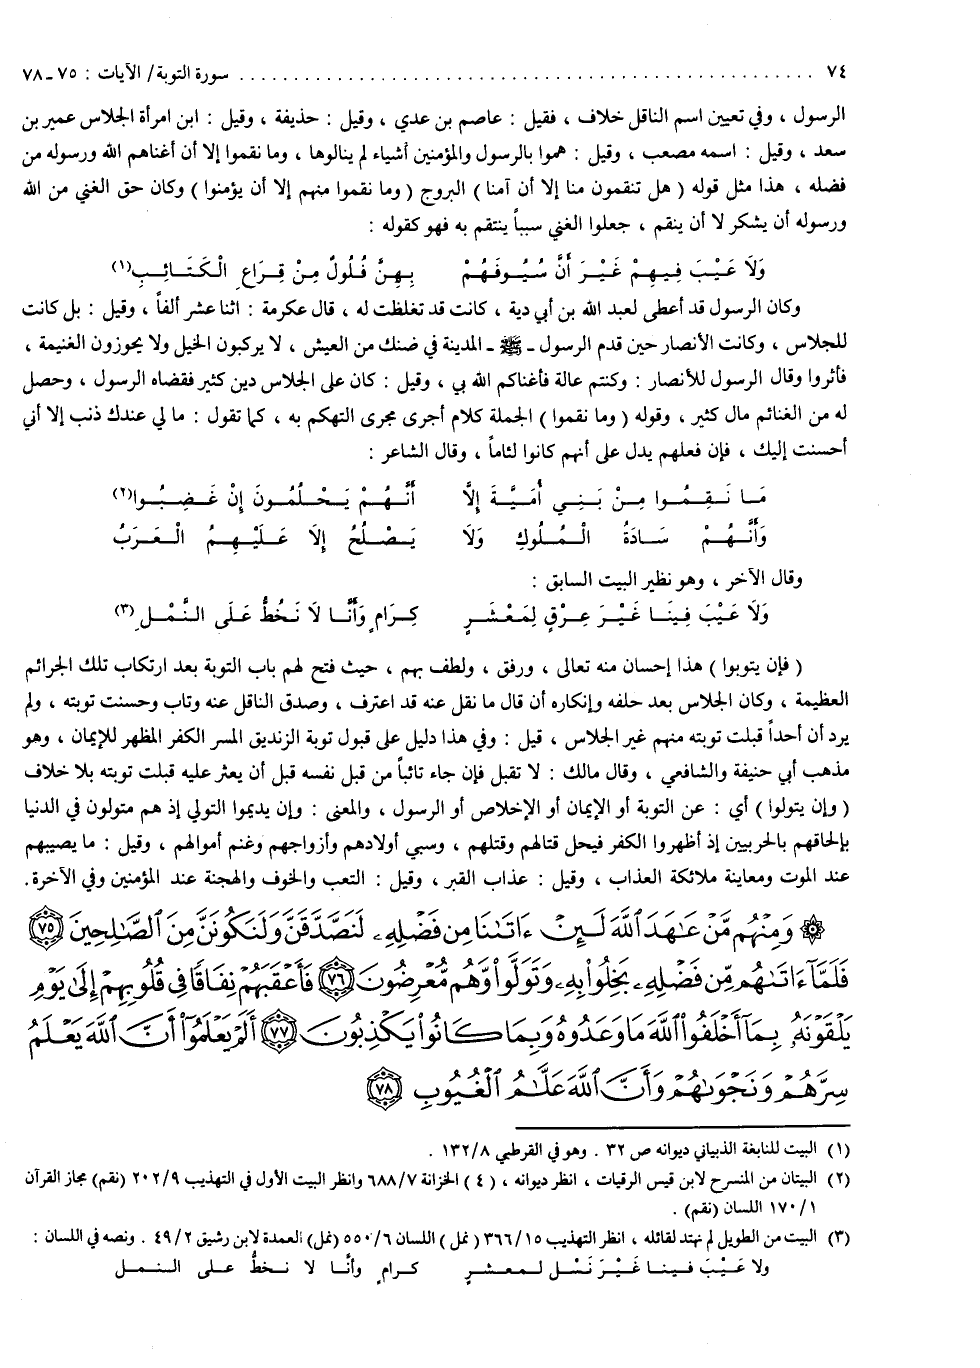 ٧٤ ........ سورة التوبة/ الآيات : ٧٥ ـ ٧٨
الرسول ، وفي تعيين اسم الناقل خلاف ، فقيل : عاصم بن عدي ، وقيل : حذيفة ، وقيل : ابن امرأة الجلاس عمير بن
سعد ، وقيل : اسمه مصعب ، وقيل : هموا بالرسول والمؤمنين أشياء لم ينالوها ، وما نقموا إلا أن أغناهم الله ورسوله من
فضله ، هذا مثل قوله ( هل تنقمون منا إلا أن آمنا ) البروج ( وما نقموا منهم إلا أن يؤمنوا ) وكان حق الغني من الله
ورسوله أن يشكر لا أن ينقم ، جعلوا الغني سبباً ينتقم به فهو كقوله :
وَلَا عَيْبَ فِيهِمْ غَيْرَ أَنَّ سُيُوفَهُمْ بِهِنَّ فُلُولٌ مِنْ قِرَاعِ الْكَتَائِبِ(١)
وكان الرسول قد أعطى لعبد الله بن أبي دية ، كانت قد تغلظت له ، قال عكرمة : اثنا عشر ألفاً ، وقيل : بل كانت
للجلاس ، وكانت الأنصار حين قدم الرسول ـ ﷺ ـ المدينة في ضنك من العيش ، لا يركبون الخيل ولا يحوزون الغنيمة ،
فأثروا وقال الرسول للأنصار : وكنتم عالة فأغناكم الله بي ، وقيل : كان على الجلاس دين كثير فقضاه الرسول ، وحصل
له من الغنائم مال كثير ، وقوله ( وما نقموا ) الجملة كلام أجرى مجرى التهكم به ، كما تقول : ما لي عندك ذنب إلا أني
أحسنت إليك ، فإن فعلهم يدل على أنهم كانوا لئاماً ، وقال الشاعر :
مَا نَقِمُوا مِنْ بَنِي أُمَيَّةَ إِلَّا أَنَّهُمْ يَحْلُمُونَ إِنْ غَضِبُوا(٢)
وَأَنَّهُمْ سَادَةُ الْمُلُوكِ وَلَا يَصْلُحُ إِلَّا عَلَيْهِمُ الْعَرَبُ
وقال الآخر ، وهو نظير البيت السابق :
وَلَا عَيْبَ فِينَا غَيْرَ عِرْقٍ لِمَعْشَرٍ كِرَامٍ وَأَنَّا لَا نَخُطُّ عَلَى النَّمْلِ(٣)
( فإن يتوبوا ) هذا إحسان منه تعالى ، ورفق ، ولطف بهم ، حيث فتح لهم باب التوبة بعد ارتكاب تلك الجرائم
العظيمة ، وكان الجلاس بعد حلفه وإنكاره أن قال ما نقل عنه قد اعترف ، وصدق الناقل عنه وتاب وحسنت توبته ، ولم
يرد أن أحداً قبلت توبته منهم غير الجلاس ، قيل : وفي هذا دليل على قبول توبة الزنديق المسر الكفر المظهر للإيمان ، وهو
مذهب أبي حنيفة والشافعي ، وقال مالك : لا تقبل فإن جاء تائباً من قبل نفسه قبل أن يعثر عليه قبلت توبته بلا خلاف
( وإن يتولوا ) أي : عن التوبة أو الإيمان أو الإخلاص أو الرسول ، والمعنى : وإن يديموا التولي إذ هم متولون في الدنيا
بإلحاقهم بالحربيين إذ أظهروا الكفر فيحل قتالهم وقتلهم ، وسبي أولادهم وأزواجهم وغنم أموالهم ، وقيل : ما يصيبهم
عند الموت ومعاينة ملائكة العذاب ، وقيل : عذاب القبر ، وقيل : التعب والخوف والهجنة عند المؤمنين وفي الآخرة.
۞ وَمِنْهُم مَّنْ عَـٰهَدَ ٱللَّهَ لَئِنْ ءَاتَىٰنَا مِن فَضْلِهِۦ لَنَصَّدَّقَنَّ وَلَنَكُونَنَّ مِنَ ٱلصَّـٰلِحِينَ ٧٥
فَلَمَّآ ءَاتَىٰهُم مِّن فَضْلِهِۦ بَخِلُوا۟ بِهِۦ وَتَوَلَّوا۟ وَّهُم مُّعْرِضُونَ ٧٦ فَأَعْقَبَهُمْ نِفَاقًا فِى قُلُوبِهِمْ إِلَىٰ يَوْمِ
يَلْقَوْنَهُۥ بِمَآ أَخْلَفُوا۟ ٱللَّهَ مَا وَعَدُوهُ وَبِمَا كَانُوا۟ يَكْذِبُونَ ٧٧ أَلَمْ يَعْلَمُوٓا۟ أَنَّ ٱللَّهَ يَعْلَمُ
سِرَّهُمْ وَنَجْوَىٰهُمْ وَأَنَّ ٱللَّهَ عَلَّـٰمُ ٱلْغُيُوبِ ٧٨
(١) البيت للنابغة الذبياني ديوانه ص ٣٢ . وهو في القرطبي ١٣٢/٨ .
(٢) البيتان من المنسرح لابن قيس الرقيات ، انظر ديوانه ، ( ٤ ) الخزانة ٦٨٨/٧ وانظر البيت الأول في التهذيب ٢٠٢/٩ (نقم) مجاز القرآن
١٧٠/١ اللسان (نقم) .
(٣) البيت من الطويل لم نهتد لقائله ، انظر التهذيب ٣٦٦/١٥ ( نمل ) اللسان ٥٥٠/٦ (نمل) العمدة لابن رشيق ٤٩/٢ . ونصه في اللسان :
ولا عَيْبَ فينا غَيْرَ نَسْل لمعشرٍ كرامٍ وأنَّا لا نخطُّ على النمل